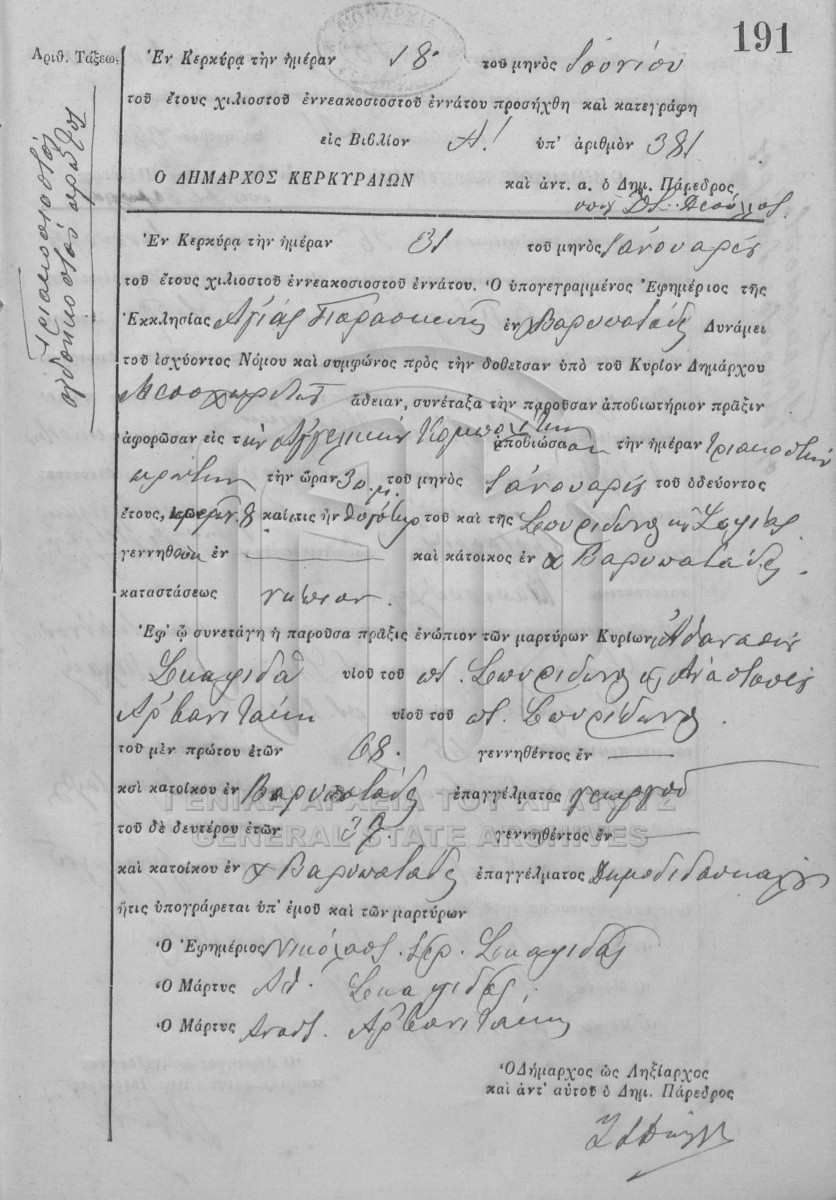 191
Ἀριθ. Τάξεως
Τριακοσιοστὸν
ὀγδοηκοστὸν πρῶτον
Ἐν Κερκύρᾳ τὴν ἡμέραν 18 τοῦ μηνὸς Ἰουνίου
τοῦ ἔτους χιλιοστοῦ ἐννεακοσιοστοῦ ἐννάτου προσήχθη καὶ κατεγράφη
εἰς Βιβλίον Α! ὑπ' ἀριθμὸν 381
Ο ΔΗΜΑΡΧΟΣ ΚΕΡΚΥΡΑΙΩΝ καὶ ἀντ. α. ὁ Δημ. Πάρεδρος
Ἐν Κερκύρᾳ τὴν ἡμέραν 31 τοῦ μηνὸς Ἰανουαρίου
τοῦ ἔτους χιλιοστοῦ ἐννεακοσιοστοῦ ἐννάτου. Ὁ ὑπογεγραμμένος Ἐφημέριος τῆς
Ἐκκλησίας Ἁγίας Παρασκευῆς ἐν χ Βαρυπατάδες Δυνάμει
τοῦ ἰσχύοντος Νόμου καὶ συμφώνος πρὸς τὴν δοθεῖσαν ὑπὸ τοῦ Κυρίου Δημάρχου
Μεσοχωριτῶν ἄδειαν, συνέταξα τὴν παροῦσαν ἀποβιωτήριον πρᾶξιν
ἀφορῶσαν εἰς τὴν Ἀγγελικὴν ἀποβιώσασαν τὴν ἡμέραν τριακοστὴν
πρώτην τὴν ὥραν 3 π.μ. τοῦ μηνὸς Ἰανουαρίου τοῦ ὁδεύοντος
ἔτους, ἡμερῶν 8 καὶ τις ἦν θυγάτηρ τοῦ καὶ τῆς Σπυρίδωνος κ Σοφίας
γεννηθεῖσα ἐν — καὶ κάτοικος ἐν χ Βαρυπατάδες
καταστάσεως νήπιον.
Ἐφ' ᾧ συνετάγη ἡ παροῦσα πρᾶξις ἐνώπιον τῶν μαρτύρων Κυρίων Ἀθανασίου
Σκαφιδᾶ υἱοῦ τοῦ ποτ. Σπυρίδωνος κ Ἀναστασίου
Ἀρβανιτάκη υἱοῦ τοῦ ποτ. Σπυρίδωνος
τοῦ μὲν πρώτου ἐτῶν 68. γεννηθέντος ἐν —
κσὶ κατοίκου ἐν Βαρυπατάδες ἐπαγγέλματος γεωργοῦ
ΓΕΝΙΚΑ ΑΡΧΕΙΑ ΤΟΥ ΚΡΑΤΟΥΣ
τοῦ δὲ δευτέρου ἐτῶν 37 γεννηθέντος ἐν —
GENERAL STATE ARCHIVES
καὶ κατοίκου ἐν χ Βαρυπατάδες ἐπαγγέλματος Δημοδιδασκάλου
ἥτις ὑπογράφεται ὑπ' ἐμοῦ καὶ τῶν μαρτύρων
Ὁ Ἐφημέριος Νικόλαος Ἱερ. Σκαφιδᾶς
Ὁ Μάρτυς Αθ. Σκαφιδᾶς
Ὁ Μάρτυς Αναστ. Ἀρβανιτάκης
Ὁ Δήμαρχος ὡς Ληξίαρχος
καὶ ἀντ' αὐτοῦ ὁ Δημ. Πάρεδρος